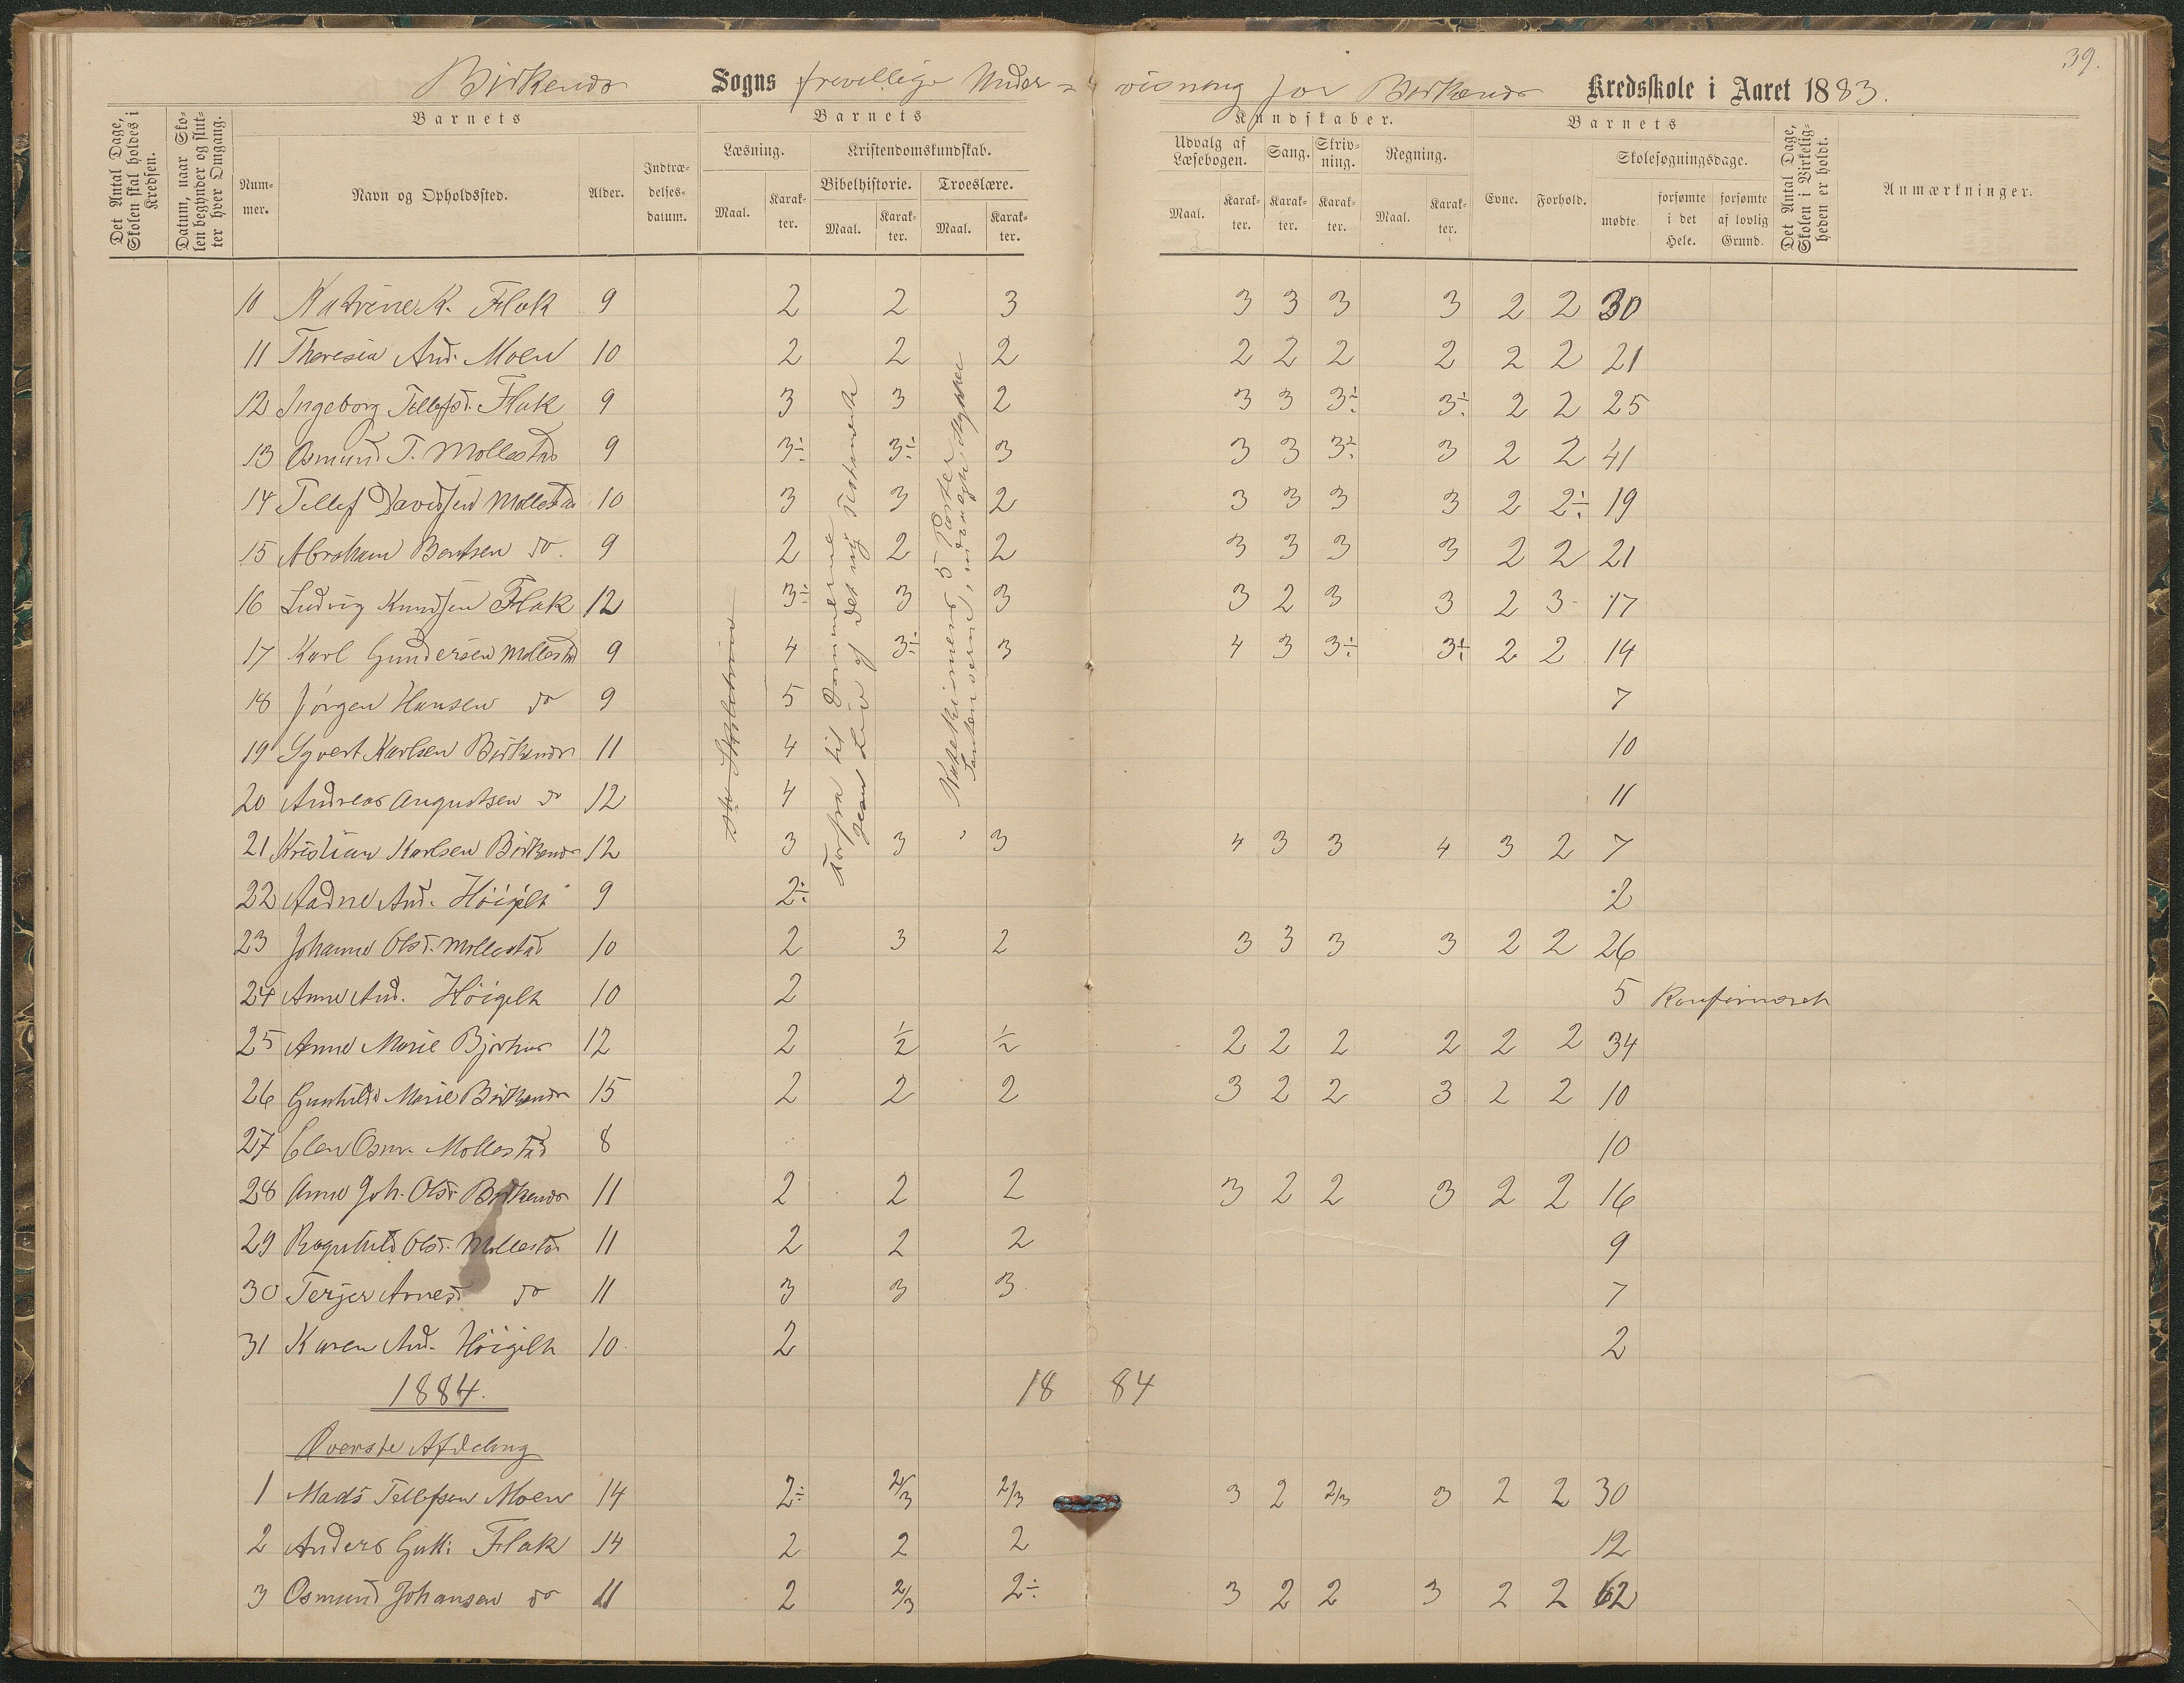 39.
Birkenes Sogns frivillige Under= visning for Birkenes Kredsskole i Aaret 1883.
Det Antal Dage, Skolen skal holdes i Kredsen.
Datum, naar Skolen begynder og slutter hver Omgang.
Barnets
Nummer.
Navn og Opholdssted.
Alder.
Indtrædelsesdatum.
Barnets
Læsning.
Maal.
Karakter.
Kristendomskundskab.
Bibelhistorie.
Maal.
Karakter.
Troeslære.
Maal.
Karakter.
Kundskaber.
Udvalg af Læsebogen.
Maal.
Karakter.
Sang.
Karakter.
Skrivning.
Karakter.
Regning.
Maal.
Karakter.
Barnets
Evne.
Forhold.
Skolesøgningsdage.
mødte.
forsømte i det Hele.
forsømte af lovlig Grund.
Det Antal Dage, Skolen i Virkeligheden er holdt.
Anmærkninger.
10 Katrine K. Flak 9 2 2 3 3 3 3 3 2 2 30
11 Theresia And. Moen 10 2 2 2 2 2 2 2 2 2 21
12 Ingeborg Tellefsd. Flak 9 3 3 2 3 3 3÷ 3÷ 2 2 25
13 Osmund T. Mollestad 9 3÷ 3÷ 3 3 3 3÷ 3 2 2 41
14 Tellef Davidsen Mollestad 10 3 3 2 3 3 3 3 2 2÷ 19
15 Abraham Bentsen do. 9 2 2 2 3 3 3 3 2 2 21
16 Ludvig Knudsen Flak 12 3÷ 3 3 3 2 3 3 2 3 17
17 Karl Gundersen Mollestad 9 4 3÷ 3 4 3 3÷ 3÷ 2 2 14
18 Jørgen Hansen do 9 5 7
19 Syvert Karlsen Birkenes 11 4 10
20 Andreas Augustsen do 12 4 11
21 Kristian Karlsen Birkenes 12 3 3 3 4 3 3 4 3 2 7
22 Aadne And. Höigilt 9 2÷ 2
23 Johanne Olsd. Mollestad 10 2 3 2 3 3 3 3 2 2 26
24 Anne And. Höigilt 10 2 5 Konfirmeret
25 Anne Marie Bjorhus 12 2 1/2 1/2 2 2 2 2 2 2 34
26 Gunhilde Marie Birkenes 15 2 2 2 3 2 2 3 2 2 10
27 Elen Osm. Mollestad 8 10
28 Anne Joh. Olsd. Birkenes 11 2 2 2 3 2 2 3 2 2 16
29 Ragnhild Olsd. Mollestad 11 2 2 2 9
30 Terjer Arnesd. do 11 3 3 3 7
31 Karen And. Höigilt 10 2 2
Forfra til Dommerne
Jesu Liv af det ny Testamente
Katekismens 5 Parter
1884. 18 84
Øverste Afdeling
1 Mads Tellefsen Moen 14 2÷ 2/3 2/3 3 2 2/3 3 2 2 30
2 Anders Gutt: Flak 14 2 2 2 12
3 Osmund Johansen do 11 2 2/3 2÷ 3 2 2 3 2 2 62